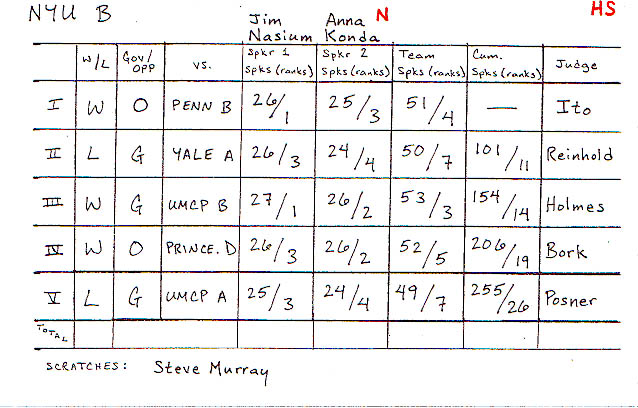 NYU B Jim Nasium Anna Konda N HS
W/L Gov/OPP vs. Spkr 1 Spks (ranks) Spkr 2 Spks (ranks) Team Spks (ranks) Cum. Spks (ranks) Judge
I W O PENN B 26/1 25/3 51/4 — Ito
II L G YALE A 26/3 24/4 50/7 101/11 Reinhold
III W G UMCP B 27/1 26/2 53/3 154/14 Holmes
IV W O PRINCE. D 26/3 26/2 52/5 206/19 Bork
V L G UMCP A 25/3 24/4 49/7 255/26 Posner
TOTAL
SCRATCHES: Steve Murray